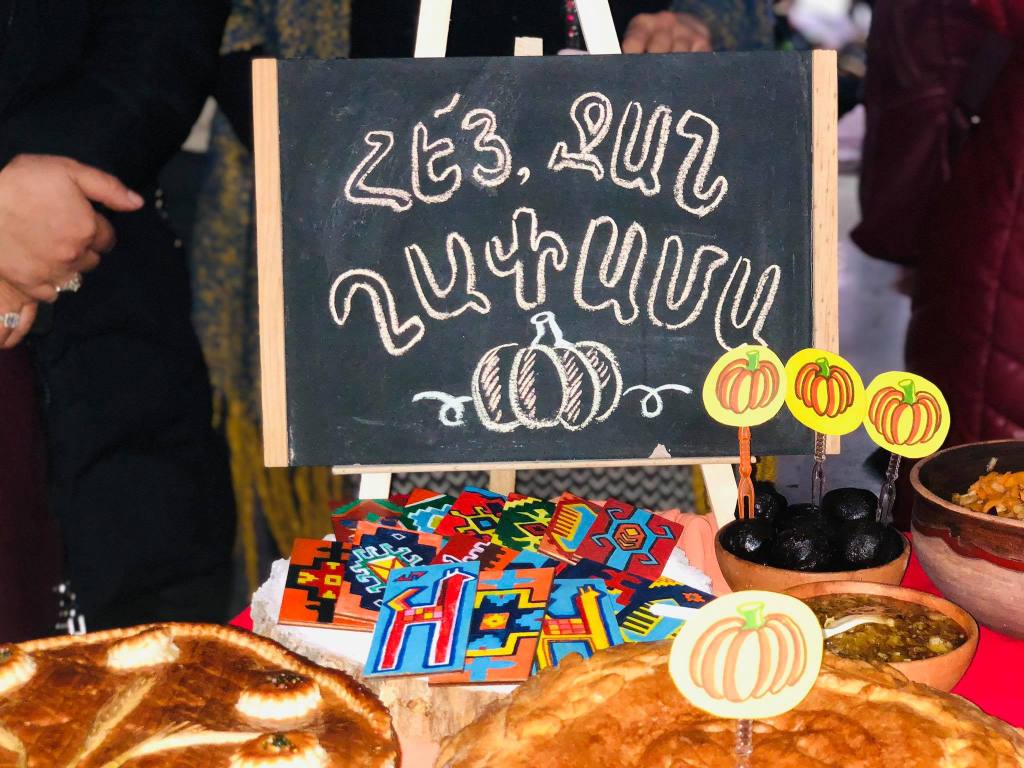 ՀԷ՜Յ, ՋԱՆ
ՂԱՓԱՄԱ